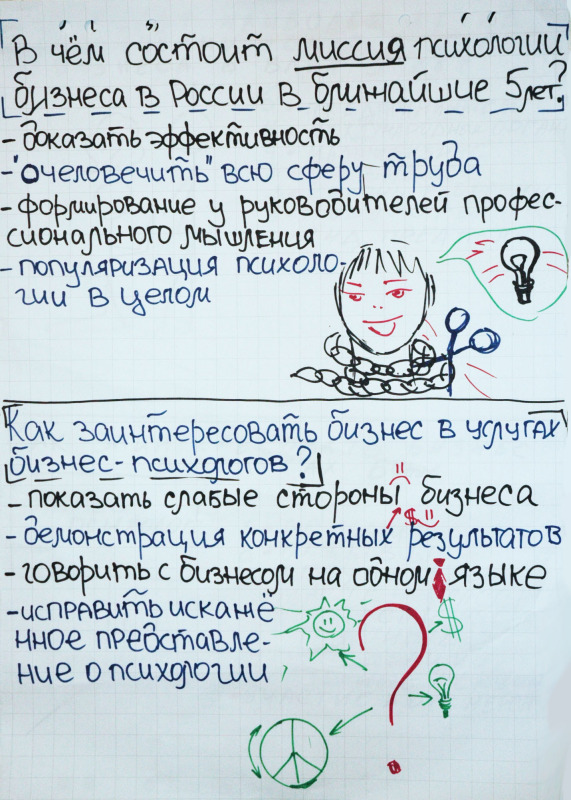 В чём состоит миссия психологии
бизнеса в России в ближайшие 5 лет?
- доказать эффективность
- "очеловечить" всю сферу труда
- формирование у руководителей профес-
сионального мышления
- популяризация психоло-
гии в целом
Как заинтересовать бизнес в услугах
бизнес-психологов?
- показать слабые стороны бизнеса
- демонстрация конкретных результатов
- говорить с бизнесом на одном языке
- исправить искажё
нное представле-
ние о психологии